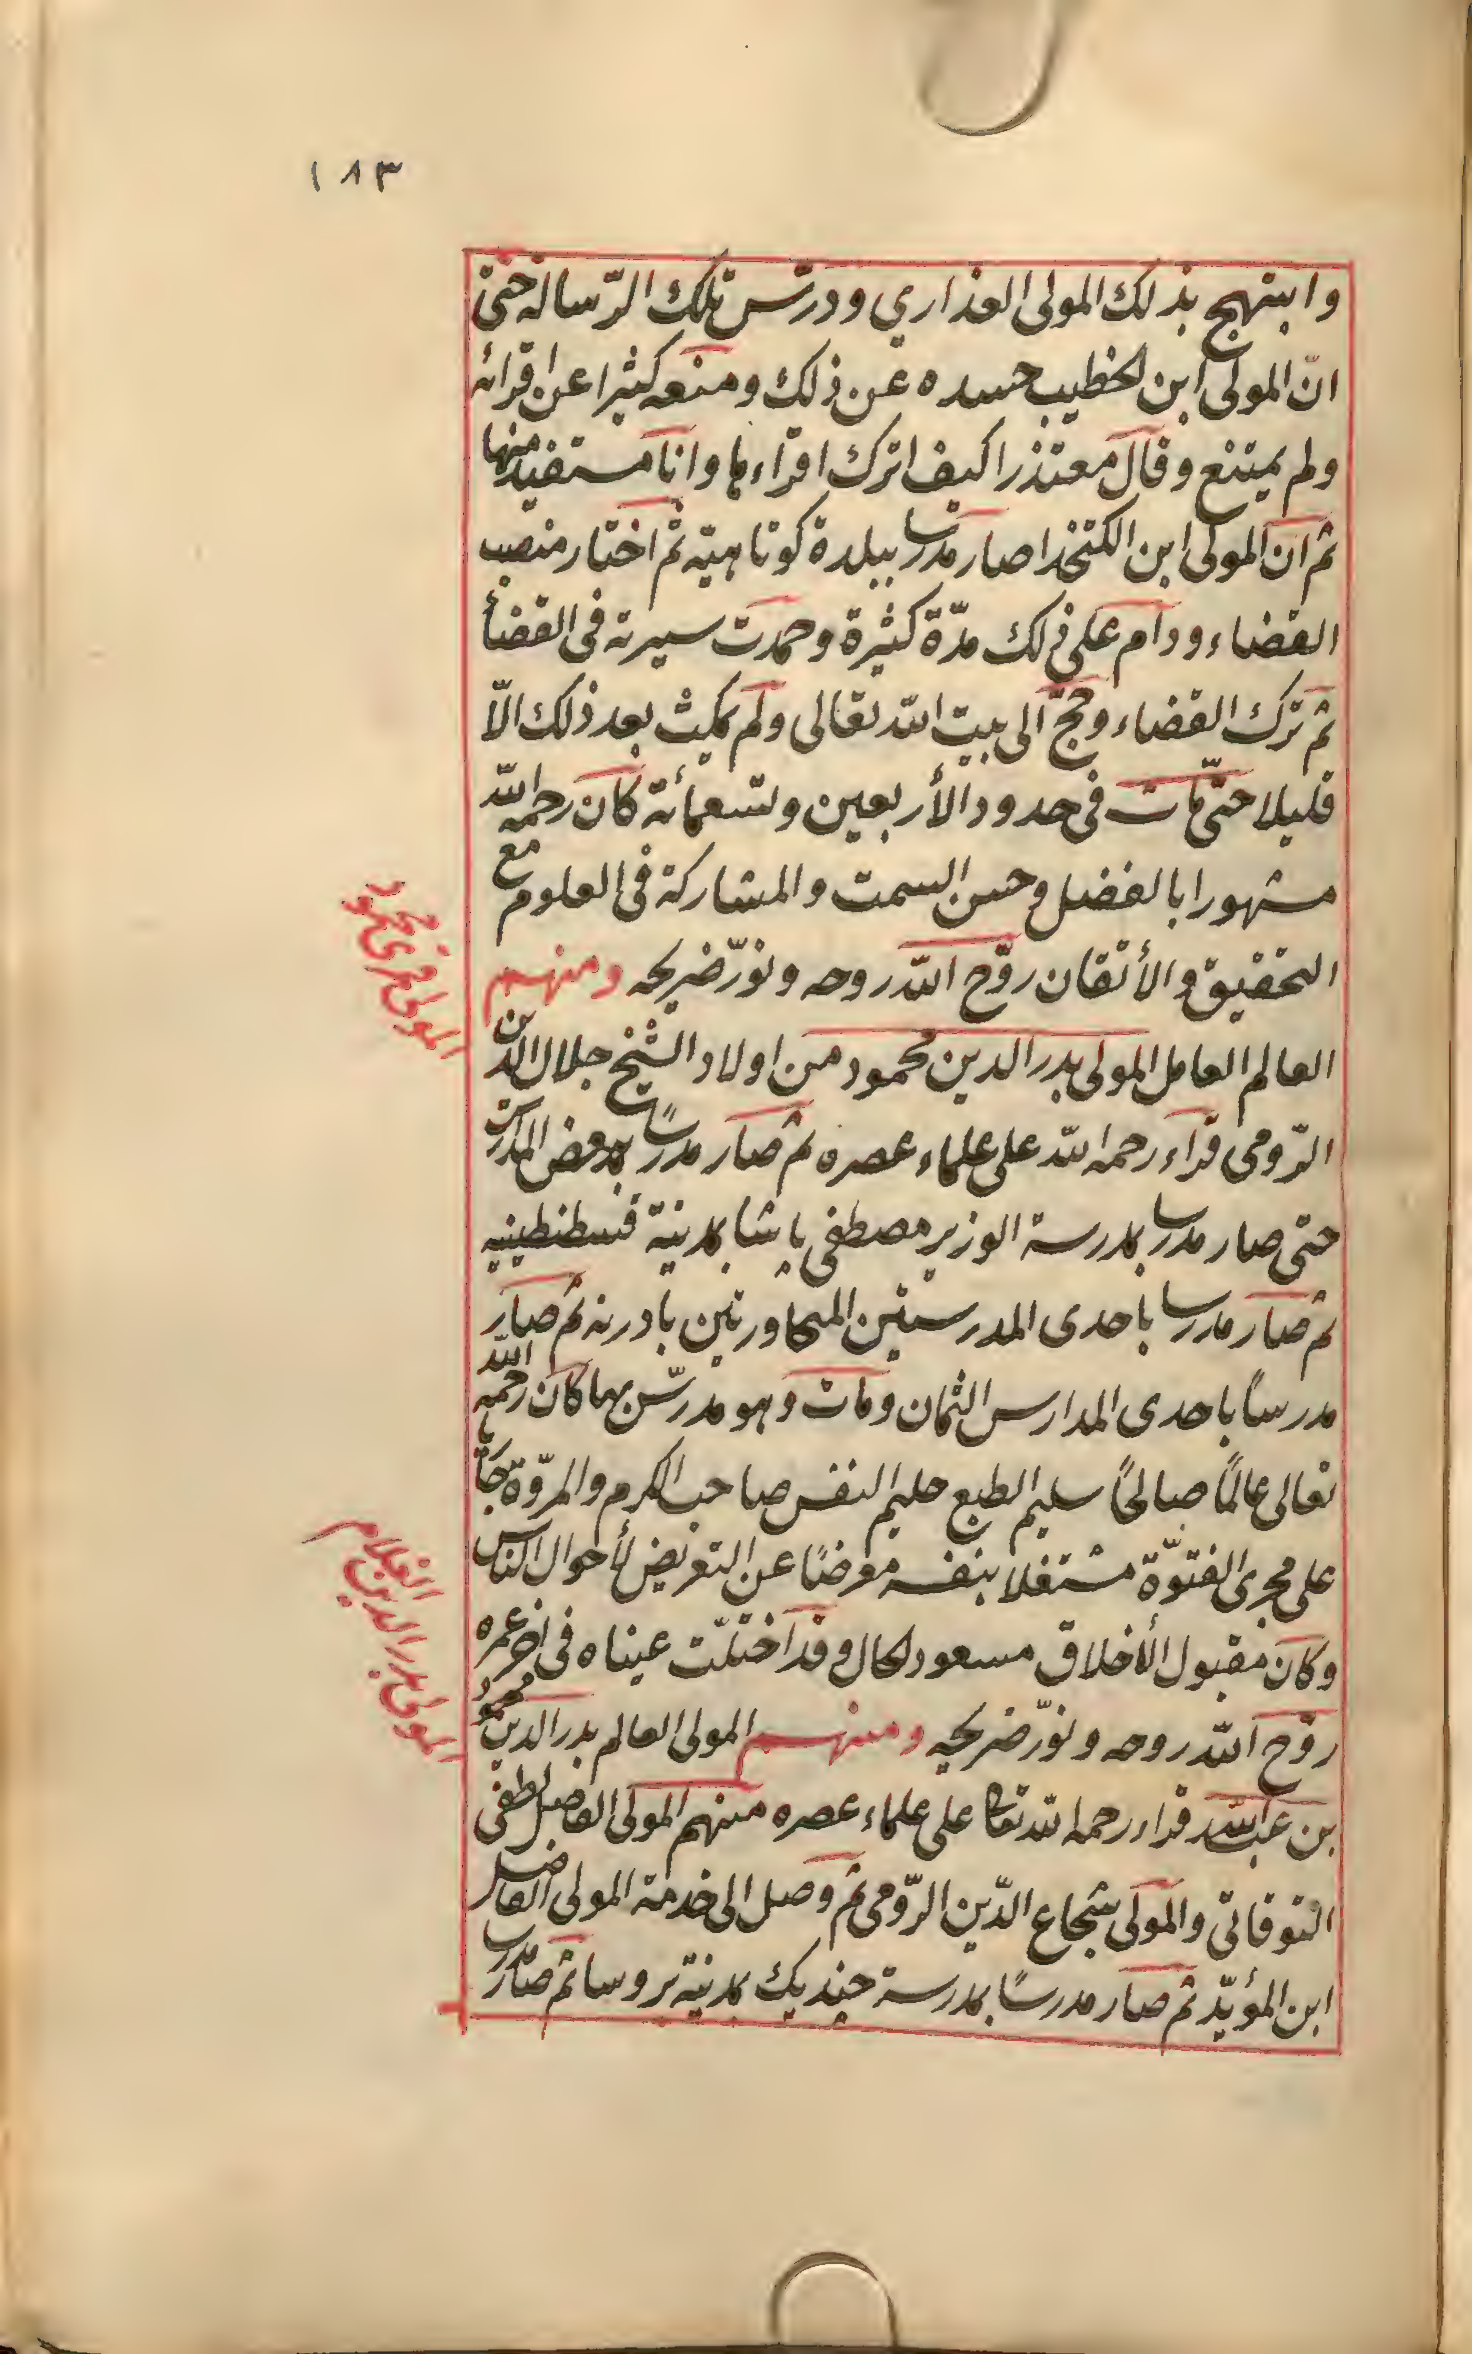 ١٨٣
وابتهج بذلك المولى العذاري ودرّس تلك الرّسالة حتى
انّ المولى ابن الخطيب حسده عن ذلك ومنعه كثيرا عن اقرائه
ولم يمتنع وقال معتذرا كيف اترك اقراءها وانا مستفيد منها
ثم ان المولى ابن الكتخذا صار مدرسا ببلدة كوتاهيّه ثم اختار منصب
القضاء ودام على ذلك مدّة كثيرة وحمدت سيرته فى القضأ
ثم ترك القضاء وحجّ الى بيت الله تعالى ولم يمكث بعد ذلك الاّ
قليلا حتّى مات فى حدود الأربعين وتسعمائة كان رحمه الله
مشهورا بالفضل وحسن السمت والمشاركة فى العلوم مع
التحقيق والأتقان روّح الله روحه ونوّر ضريحه ومنهم
العالم العامل المولى بدر الدين محمود من اولاد الشيخ جلال الدين
الرّومى قراء رحمه الله على علماء عصره ثم صار مدرسًا ببعض المدارس
حتى صار مدرسا بمدرسة الوزير مصطفى باشا بمدينة قسطنطينيه
ثم صار مدرسا باحدى المدرستين المتجاورتين بادرنه ثم صار
مدرساً باحدى المدارس الثمان ومات وهو مدرّس بها كان رحمه الله
تعالى عالمًا صالحًا سليم الطبع حليم النفس صاحب الكرم والمروّة جاريا
على مجرى الفتوّة مشتغلا بنفسه معرضًا عن التعريض لأحوال الناس
وكان مقبول الأخلاق مسعود الحال وقد اختلّت عيناه فى اخر عمره
روّح الله روحه ونوّر ضريحه ومنهم المولى العالم بدر الدين محمود
بن عبد الله قراء رحمه الله تعالى على علماء عصره منهم المولى الفاضل لطفى
التوقاتى والمولى شجاع الدّين الرّومى ثم وصل الى خدمة المولى الفاضل
ابن المؤيّد ثم صار مدرسًا بمدرسة جنديك بمدينة بروسا ثم صار مدرسا
المولى محمود
المولى بدر الدين الغلام